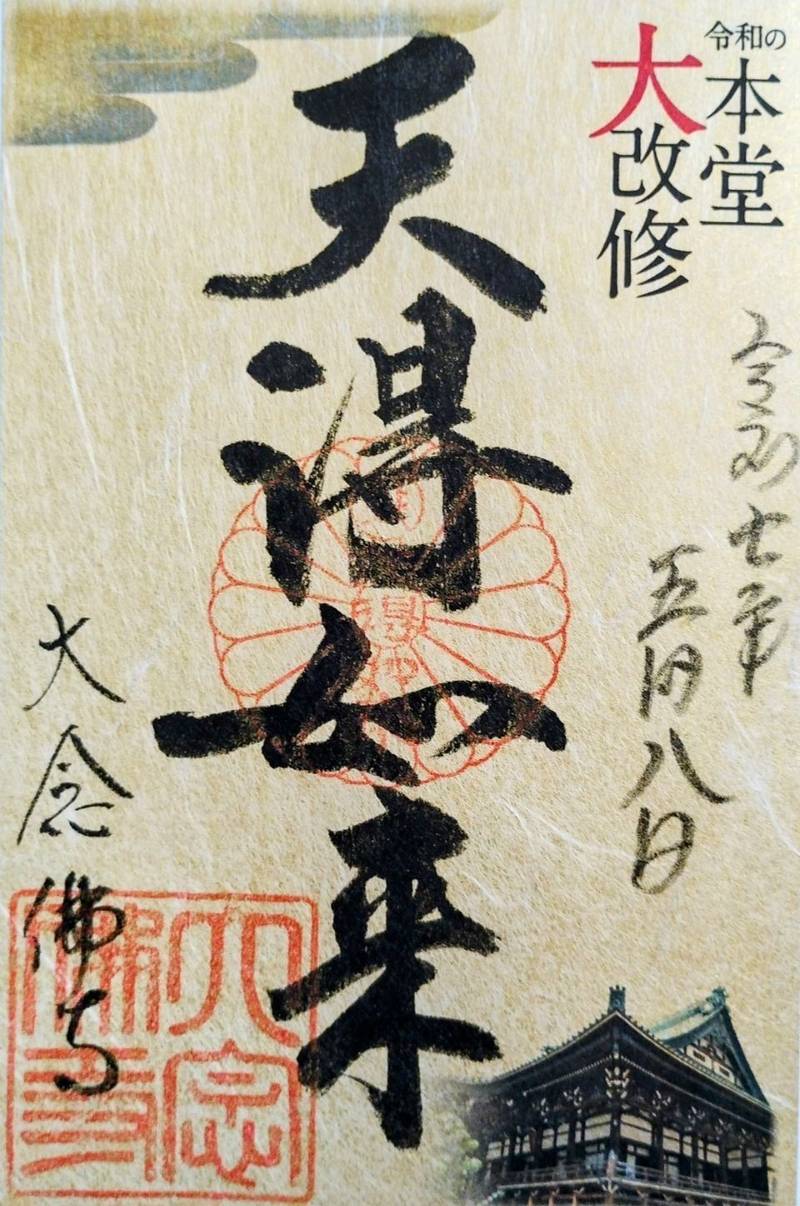 令和の
本堂
大改修
令和七年
五月八日
天得如来
大念佛寺
大念
佛寺